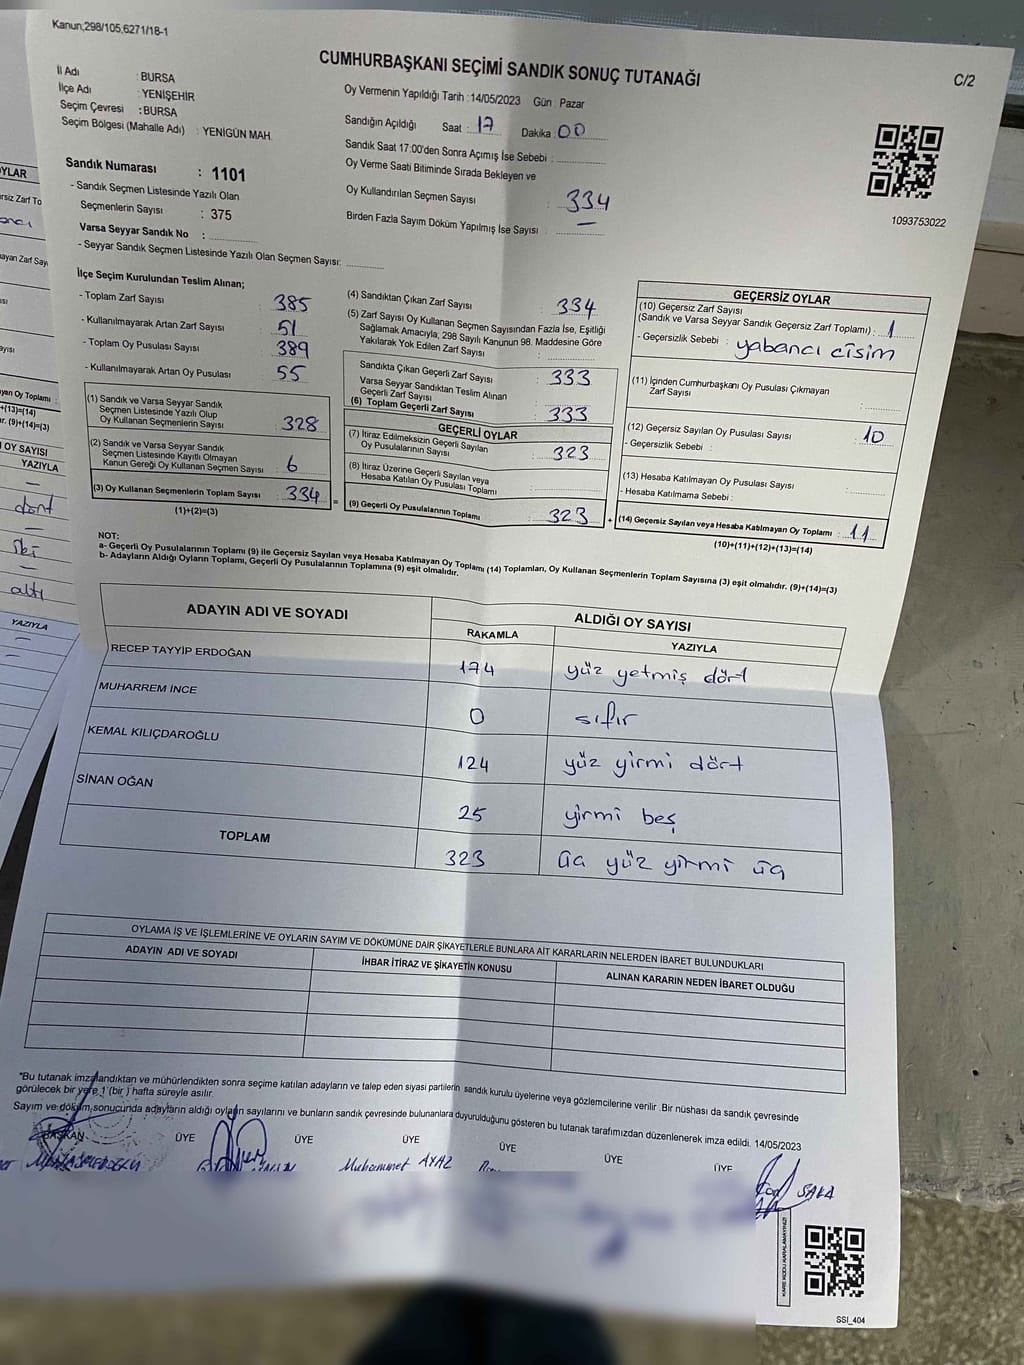 Kanun;298/105,6271/18-1
CUMHURBAŞKANI SEÇİMİ SANDIK SONUÇ TUTANAĞI
C/2
İl Adı : BURSA
İlçe Adı : YENİŞEHİR
Seçim Çevresi : BURSA
Seçim Bölgesi (Mahalle Adı) : YENİGÜN MAH.
Sandık Numarası : 1101
- Sandık Seçmen Listesinde Yazılı Olan
Seçmenlerin Sayısı : 375
Varsa Seyyar Sandık No :
- Seyyar Sandık Seçmen Listesinde Yazılı Olan Seçmen Sayısı:
Oy Vermenin Yapıldığı Tarih : 14/05/2023 Gün : Pazar
Sandığın Açıldığı Saat : 17 Dakika : 00
Sandık Saat 17:00'den Sonra Açımış İse Sebebi :
Oy Verme Saati Bitiminde Sırada Bekleyen ve
Oy Kullandırılan Seçmen Sayısı : 334
Birden Fazla Sayım Döküm Yapılmış İse Sayısı : —
1093753022
İlçe Seçim Kurulundan Teslim Alınan;
- Toplam Zarf Sayısı : 385
- Kullanılmayarak Artan Zarf Sayısı : 51
- Toplam Oy Pusulası Sayısı : 389
- Kullanılmayarak Artan Oy Pusulası : 55
(1) Sandık ve Varsa Seyyar Sandık
Seçmen Listesinde Yazılı Olup
Oy Kullanan Seçmenlerin Sayısı : 328
(2) Sandık ve Varsa Seyyar Sandık
Seçmen Listesinde Kayıtlı Olmayan
Kanun Gereği Oy Kullanan Seçmen Sayısı : 6
(3) Oy Kullanan Seçmenlerin Toplam Sayısı : 334 =
(1)+(2)=(3)
(4) Sandıktan Çıkan Zarf Sayısı : 334
(5) Zarf Sayısı Oy Kullanan Seçmen Sayısından Fazla İse, Eşitliği
Sağlamak Amacıyla, 298 Sayılı Kanunun 98. Maddesine Göre
Yakılarak Yok Edilen Zarf Sayısı :
Sandıkta Çıkan Geçerli Zarf Sayısı : 333
Varsa Seyyar Sandıktan Teslim Alınan
Geçerli Zarf Sayısı :
(6) Toplam Geçerli Zarf Sayısı : 333
GEÇERLİ OYLAR
(7) İtiraz Edilmeksizin Geçerli Sayılan
Oy Pusulalarının Sayısı : 323
(8) İtiraz Üzerine Geçerli Sayılan veya
Hesaba Katılan Oy Pusulası Toplamı
(9) Geçerli Oy Pusulalarının Toplamı : 323 +
GEÇERSİZ OYLAR
(10) Geçersiz Zarf Sayısı
(Sandık ve Varsa Seyyar Sandık Geçersiz Zarf Toplamı) : 1
- Geçersizlik Sebebi : yabancı cisim
(11) İçinden Cumhurbaşkanı Oy Pusulası Çıkmayan
Zarf Sayısı :
(12) Geçersiz Sayılan Oy Pusulası Sayısı : 10
- Geçersizlik Sebebi :
(13) Hesaba Katılmayan Oy Pusulası Sayısı :
- Hesaba Katılmama Sebebi :
(14) Geçersiz Sayılan veya Hesaba Katılmayan Oy Toplamı : 11
(10)+(11)+(12)+(13)=(14)
NOT:
a- Geçerli Oy Pusulalarının Toplamı (9) ile Geçersiz Sayılan veya Hesaba Katılmayan Oy Toplamı (14) Toplamları, Oy Kullanan Seçmenlerin Toplam Sayısına (3) eşit olmalıdır. (9)+(14)=(3)
b- Adayların Aldığı Oyların Toplamı, Geçerli Oy Pusulalarının Toplamına (9) eşit olmalıdır.
ADAYIN ADI VE SOYADI
ALDIĞI OY SAYISI
RAKAMLA YAZIYLA
RECEP TAYYİP ERDOĞAN 174 yüz yetmiş dört
MUHARREM İNCE 0 sıfır
KEMAL KILIÇDAROĞLU 124 yüz yirmi dört
SİNAN OĞAN 25 yirmi beş
TOPLAM 323 üç yüz yirmi üç
OYLAMA İŞ VE İŞLEMLERİNE VE OYLARIN SAYIM VE DÖKÜMÜNE DAİR ŞİKAYETLERLE BUNLARA AİT KARARLARIN NELERDEN İBARET BULUNDUKLARI
ADAYIN ADI VE SOYADI İHBAR İTİRAZ VE ŞİKAYETİN KONUSU ALINAN KARARIN NEDEN İBARET OLDUĞU
*Bu tutanak imzalandıktan ve mühürlendikten sonra seçime katılan adayların ve talep eden siyasi partilerin sandık kurulu üyelerine veya gözlemcilerine verilir .Bir nüshası da sandık çevresinde
görülecek bir yere 1 (bir ) hafta süreyle asılır.
Sayım ve döküm sonucunda adayların aldığı oyların sayılarını ve bunların sandık çevresinde bulunanlara duyurulduğunu gösteren bu tutanak tarafımızdan düzenlenerek imza edildi. 14/05/2023
BAŞKAN ÜYE ÜYE ÜYE ÜYE ÜYE ÜYE
Muhammet AYAZ
SAKA
KARE KODU KARALAMAYINIZ!
SSI_404
OYLAR
YAZIYLA
dört
altı
YAZIYLA